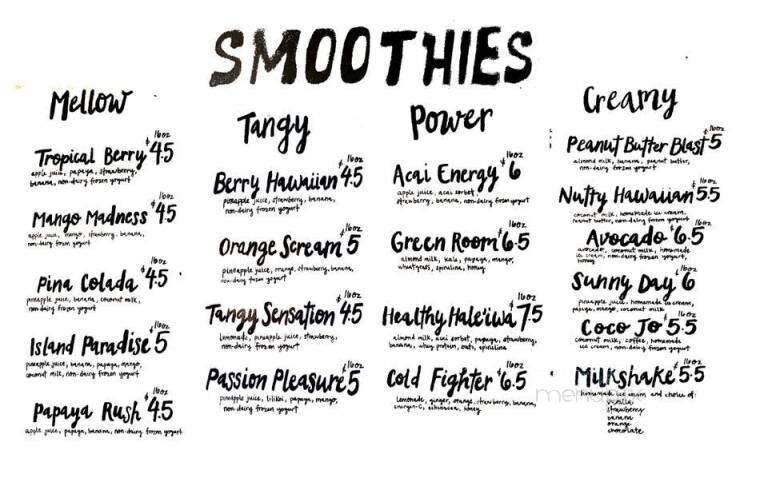 SMOOTHIES
Mellow
Tropical Berry $4.5 16oz
apple juice, papaya, strawberry,
banana, non-dairy frozen yogurt
Mango Madness $4.5 16oz
apple juice, mango, strawberry, banana,
non-dairy frozen yogurt
Pina Colada $4.5 16oz
pineapple juice, banana, coconut milk,
non-dairy frozen yogurt
Island Paradise $5 16oz
pineapple juice, banana, papaya, mango,
coconut milk, non-dairy frozen yogurt
Papaya Rush $4.5 16oz
apple juice, papaya, banana, non-dairy frozen yogurt
Tangy
Berry Hawaiian $4.5 16oz
pineapple juice, strawberry, banana,
non-dairy frozen yogurt
Orange Scream $5 16oz
pineapple juice, orange, strawberry, banana,
non-dairy frozen yogurt
Tangy Sensation $4.5 16oz
lemonade, pineapple juice, strawberry,
non-dairy frozen yogurt
Passion Pleasure $5 16oz
pineapple juice, lilikoi, papaya, mango,
non dairy frozen yogurt
Power
Acai Energy $6 16oz
apple juice, acai sorbet,
strawberry, banana, non-dairy frozen yogurt
Green Room $6.5 16oz
almond milk, kale, papaya, mango,
wheatgrass, spirulina, honey
Healthy Hale'iwa $7.5 16oz
almond milk, acai sorbet, papaya, strawberry,
banana, whey protein, oats, spirulina
Cold Fighter $6.5 16oz
lemonade, ginger, orange, strawberry, banana,
emergen-C, echinacea, honey
Creamy
Peanut Butter Blast $5 16oz
almond milk, banana, peanut butter,
non-dairy frozen yogurt
Nutty Hawaiian $5.5 16oz
coconut milk, homemade ice cream,
peanut butter, non-dairy frozen yogurt
Avocado $6.5 16oz
avocado, coconut milk, homemade
ice cream, non-dairy frozen yogurt,
honey
Sunny Day $6 16oz
pineapple juice, homemade ice cream,
papaya, mango, coconut milk
Coco Jo $5.5 16oz
coconut milk, coffee, homemade
ice cream, non-dairy frozen yogurt
Milkshake $5.5 16oz
homemade ice cream and choice of:
vanilla
strawberry
banana
orange
chocolate